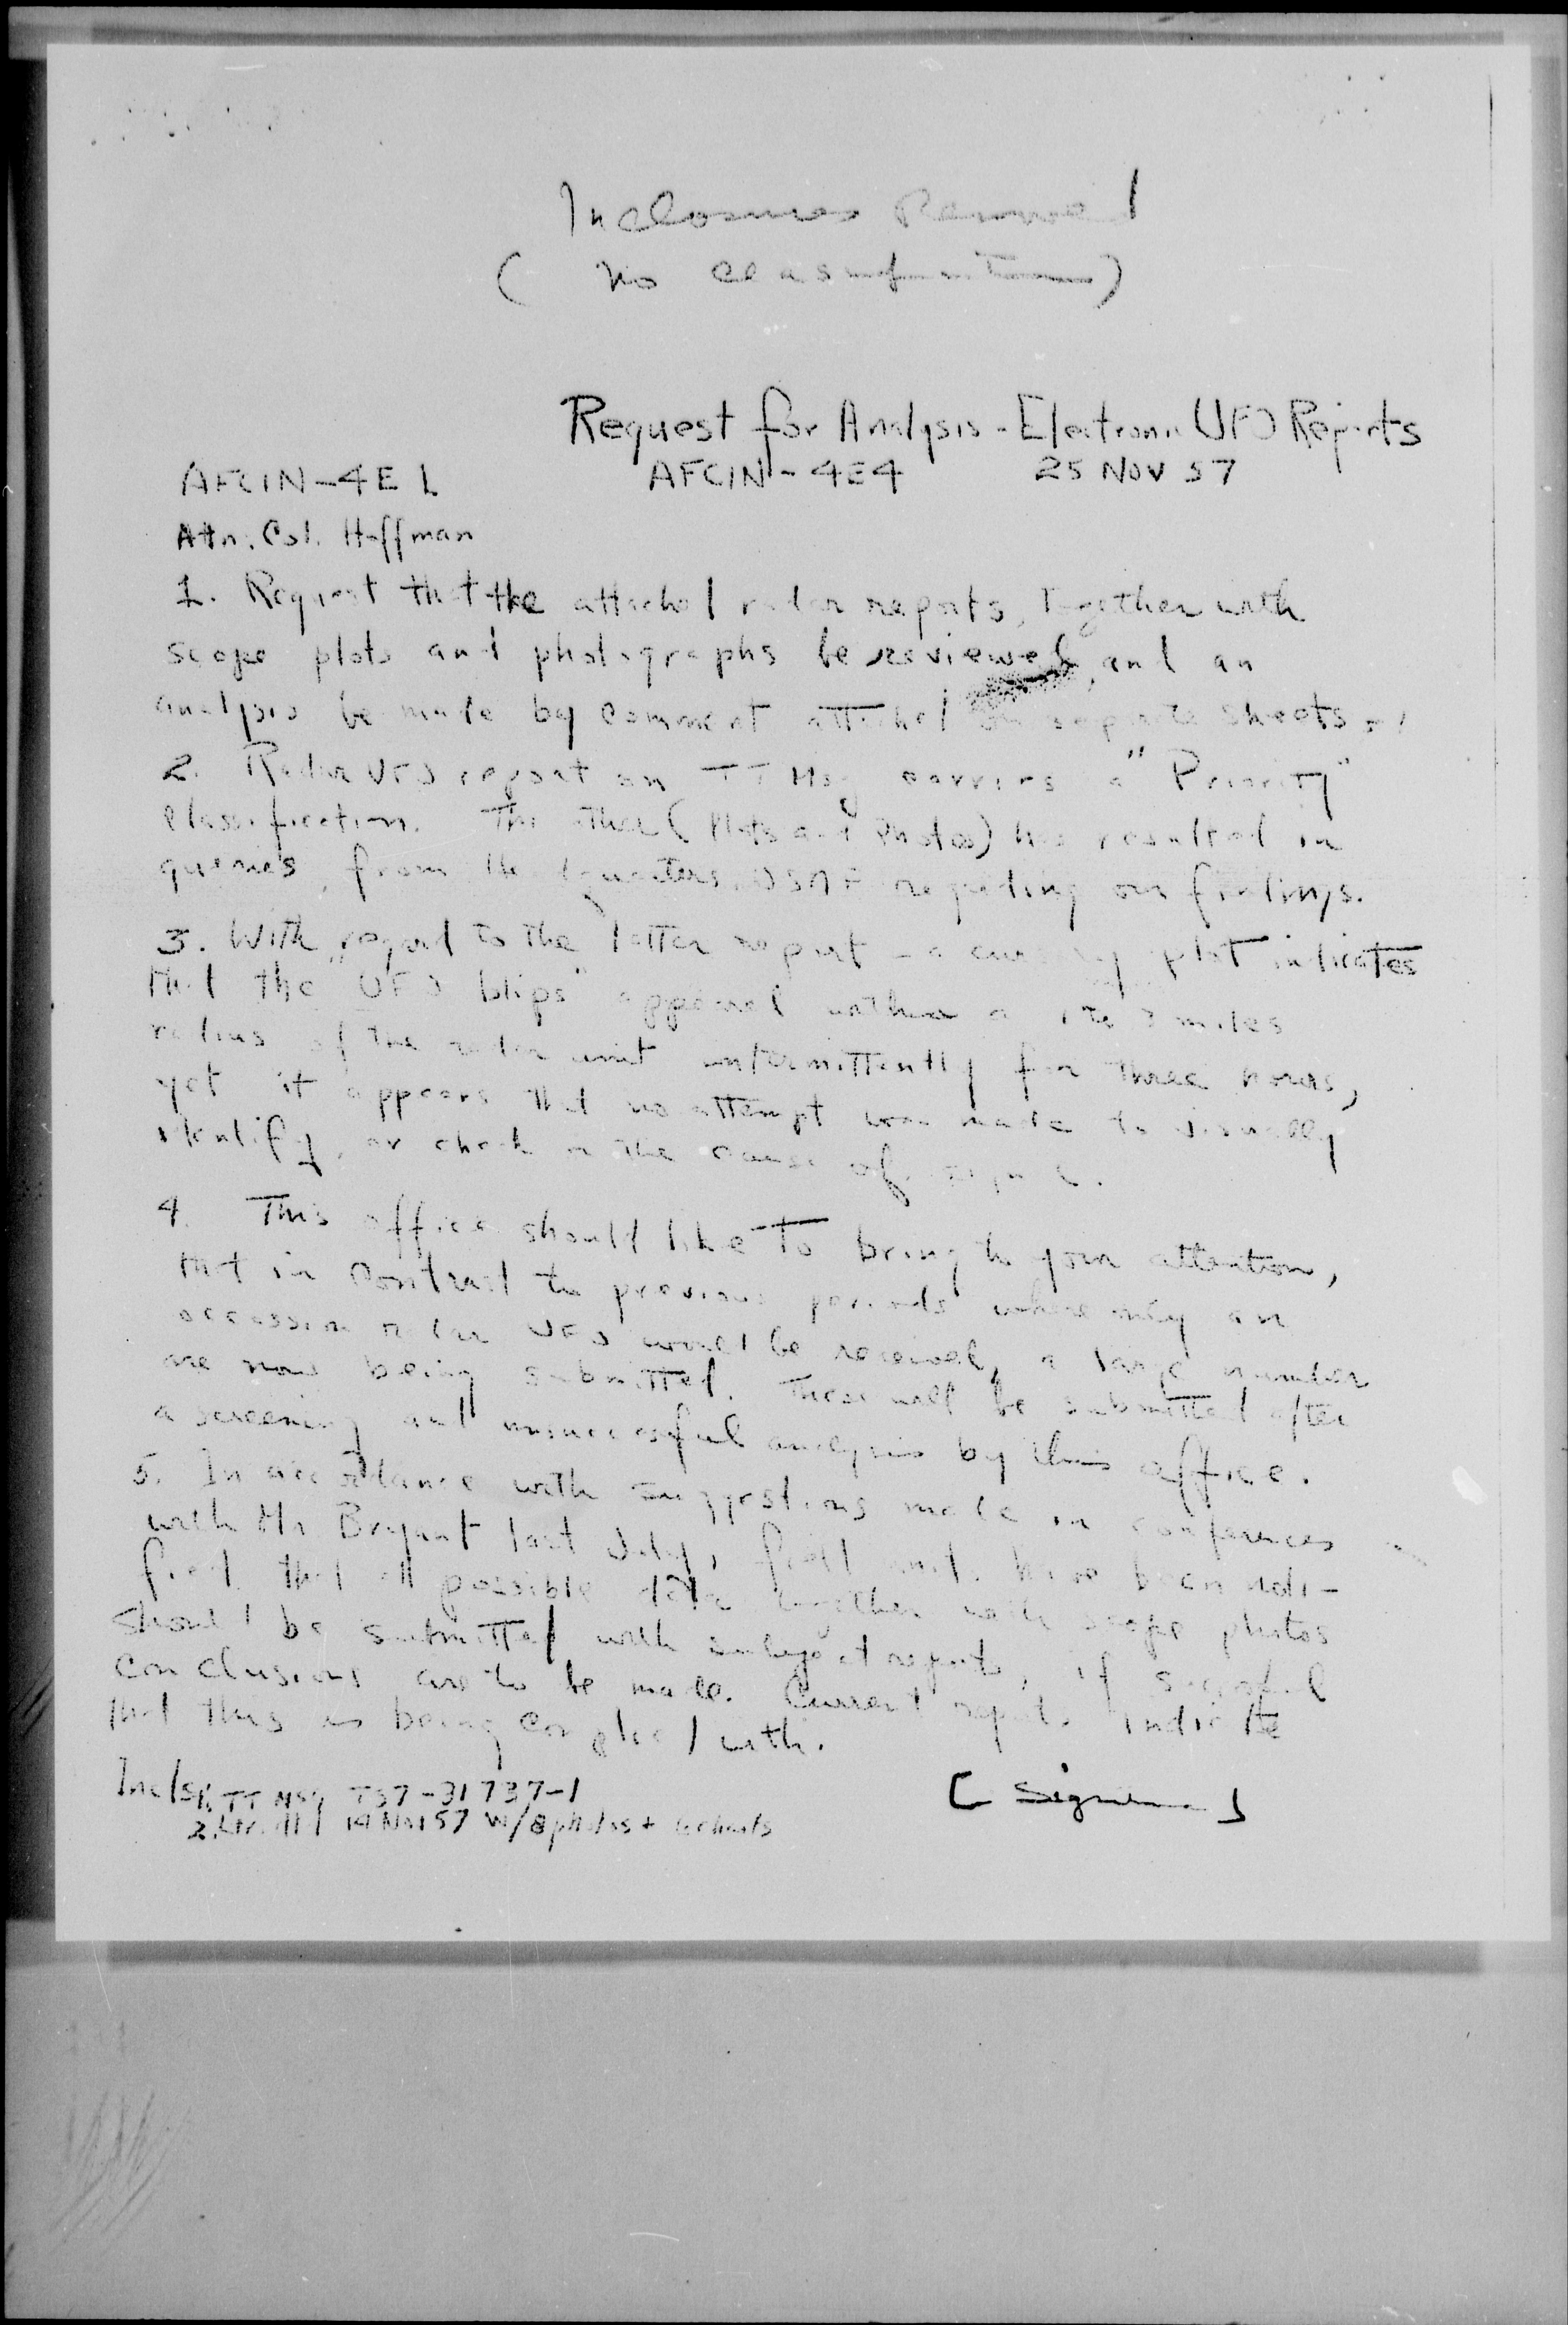 Inclosures Removed
( No Classification )
Request for Analysis - Electronic UFO Reports
AFCIN-4E1 AFCIN-4E4 25 NOV 57
Attn: Col. Hoffman
1. Request that the attached radar reports, together with
scope plots and photographs be reviewed, and an
analysis be made by comment attached on separate sheets.
2. Radar UFO report on TT Msg carries a "Priority"
classification. The other (Plots and Photos) has resulted in
queries from Headquarters, USAF regarding our findings.
3. With regard to the latter report - a cursory plot indicates
that the "UFO blips" appeared within a miles
radius of the radar unit intermittently for three hours,
yet it appears that no attempt was made to visually
identify, or check on the cause of
4. This office should like to bring to your attention,
that in contrast to previous periods where only an
occassion radar UFO would be received, a large number
are now being submitted. These will be submitted after
a screening and unsuccessful analysis by this office.
5. In accordance with suggestions made in conferences
with Mr. Bryant last July, field units have been noti-
fied that all possible data together with scope photos
should be submitted with subject reports, if
conclusions are to be made. Current reports indicate
that this is being complied with.
Incls: 1. TT Msg T57-31737-1
2. Ltr. 14 Nov 57 W/8 photos +
[ Signature ]